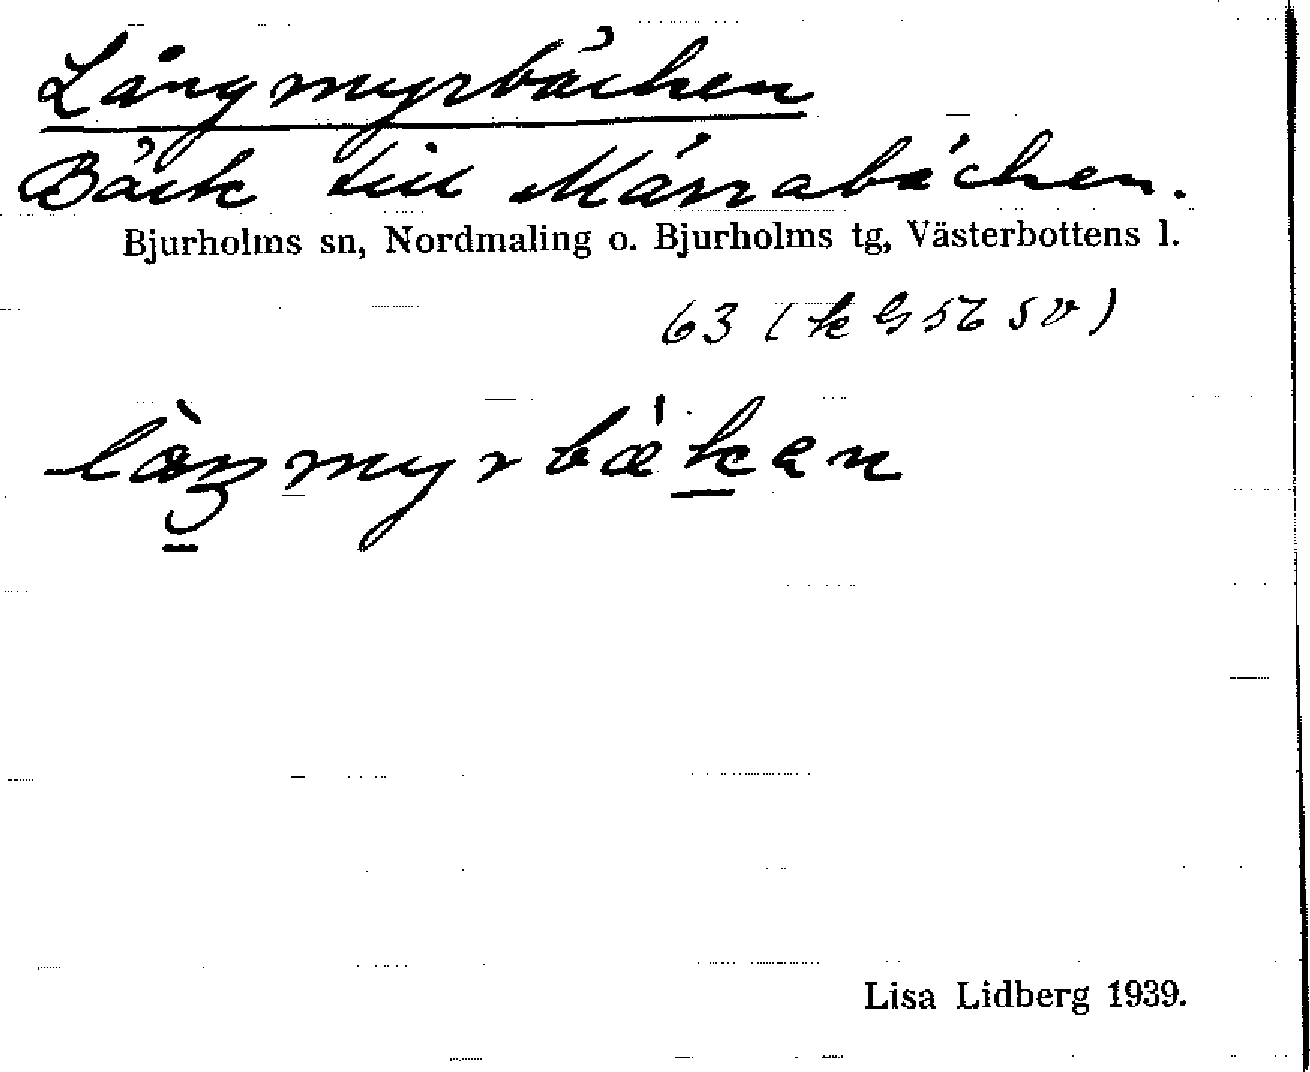 Långmyrbäcken
Bäck till Märrabäcken.
Bjurholms sn, Nordmaling o. Bjurholms tg, Västerbottens l.
63 (k G 56 SV)
làŋmyrbækan
Lisa Lidberg 1939.